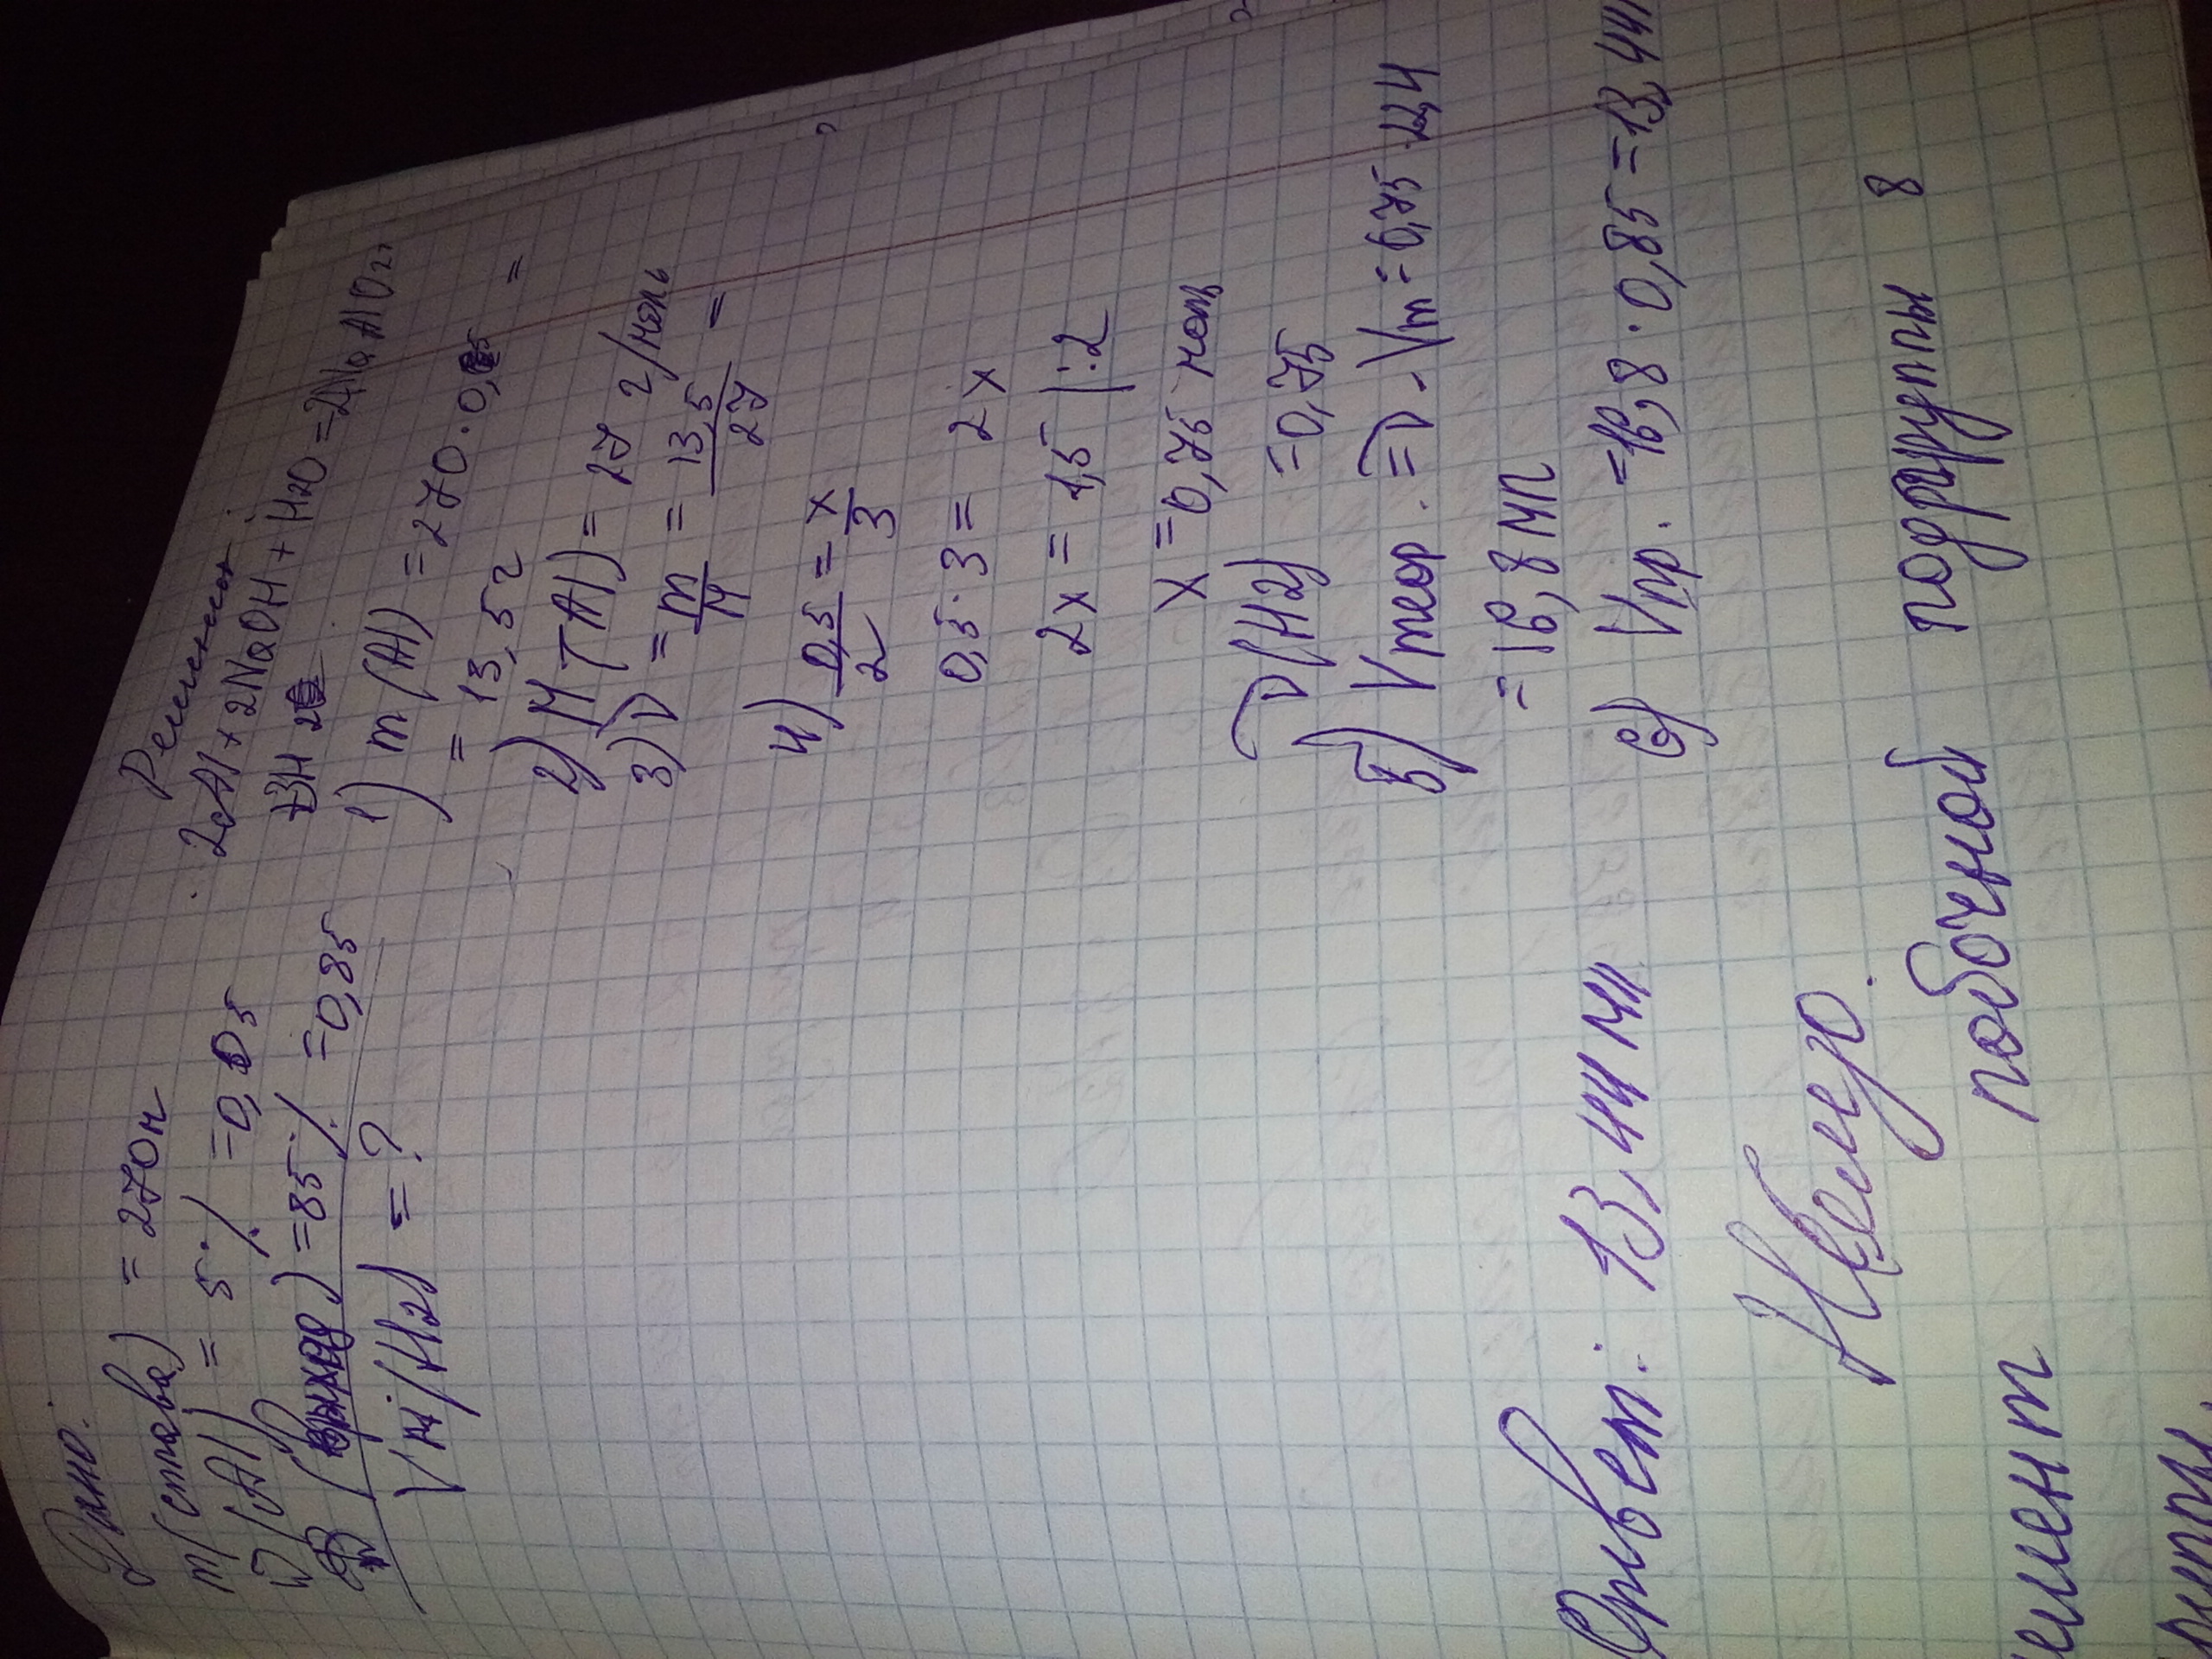 Дано:
m(сплава) = 270 г
ω(Al) = 5% = 0,05
(выход) = 85% = 0,85
V (H2) = ?
Решение:
2Al + 2NaOH + H2O = 2NaAlO2
+3H2
1) m(Al) = 270 · 0,05 =
= 13,5 г
2) M(Al) = 27 г/моль
3) ν = m/M = 13,5/27 =
4) 0,5/2 = x/3
0,5 · 3 = 2x
2x = 1,5 |:2
x = 0,75 моль
ν(H2) = 0,75
5) Vтеор. = ν · Vm = 0,75 · 22,4
= 16,8 мл
6) Vпр. = 16,8 · 0,85 = 13,44
Ответ: 13,44 мл
побочной подгруппы 8